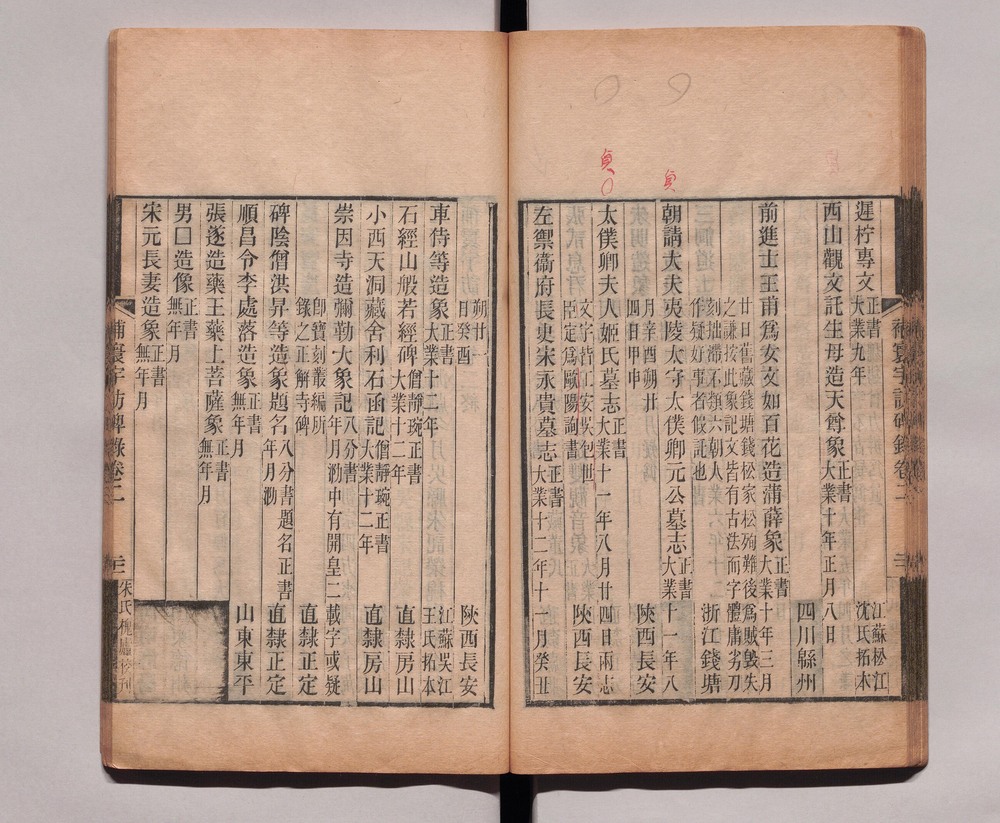 遲柠專文正書大業九年 江蘇松江沈氏拓本
西山觀文託生母造天尊象正書大業十年正月八日
四川緜州
前進士王甫為女文如百花造蒲薛象正書大業十年三月
廿日舊藏錢塘錢松家松殉難後為賊毀失
之謙按此象記文皆有古法而字體庸劣刀
刻拙滯不類六朝人
作疑好事者假託也 浙江錢塘
朝請大夫夷陵太守太僕卿元公墓志正書大業十一年八
月辛酉朔廿四日甲申 陝西長安
太僕卿夫人姬氏墓志正書大業十一年八月廿四日兩志
文字皆工安吳包世
臣定為歐陽詢書 陝西長安
左禦衞府長史宋永貴墓志正書大業十二年十一月癸丑
朔廿
日癸酉 陝西長安
車侍等造象正書大業十二年 江蘇吳江王氏拓本
石經山般若經碑僧靜琬正書大業十二年 直隸房山
小西天洞藏舍利石函記僧靜琬正書大業十二年 直隸房山
崇因寺造彌勒大象記八分書年月泐中有開皇二載字或疑
即寶刻叢編所
錄之正解寺碑 直隸正定
碑陰僧洪昇等造象題名八分書題名正書年月泐 直隸正定
順昌令李處落造象正書無年月 山東東平
張遂造藥王藥上菩薩象正書無年月
男□造像正書無年月
宋元長妻造象正書無年月
補寰宇訪碑錄卷二
三
朱氏槐廬校刊
貞
貞